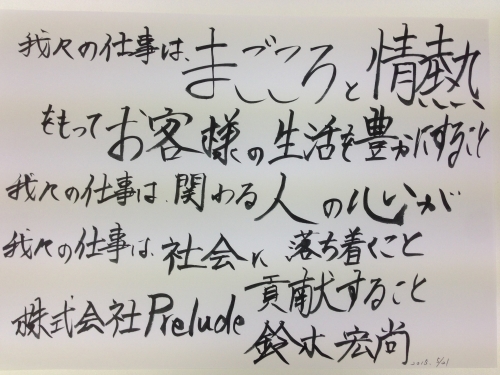 我々の仕事は、まごころと情熱
をもってお客様の生活を豊かにすること
我々の仕事は、関わる人の心が
落ち着くこと
我々の仕事は、社会に
貢献すること
株式会社Prelude
鈴木宏尚
2018. 5/21